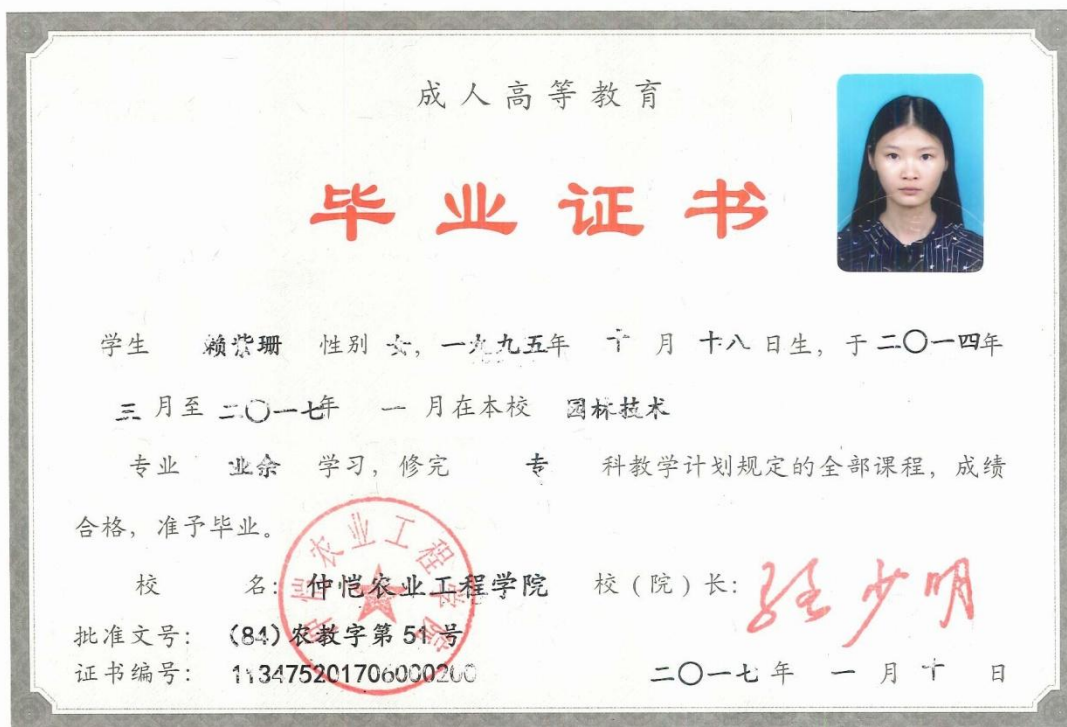 成人高等教育
毕业证书
学生 赖紫珊 性别 女，一九九五年 十 月 十八 日生，于二〇一四年
三 月至 二〇一七年 一 月在本校 园林技术
专业 业余 学习，修完 专 科教学计划规定的全部课程，成绩
合格，准予毕业。
校 名：仲恺农业工程学院 校（院）长：
批准文号：(84)农教字第 51 号
证书编号：113475201706000200
二〇一七 年 一 月 十 日
仲恺农业工程学院